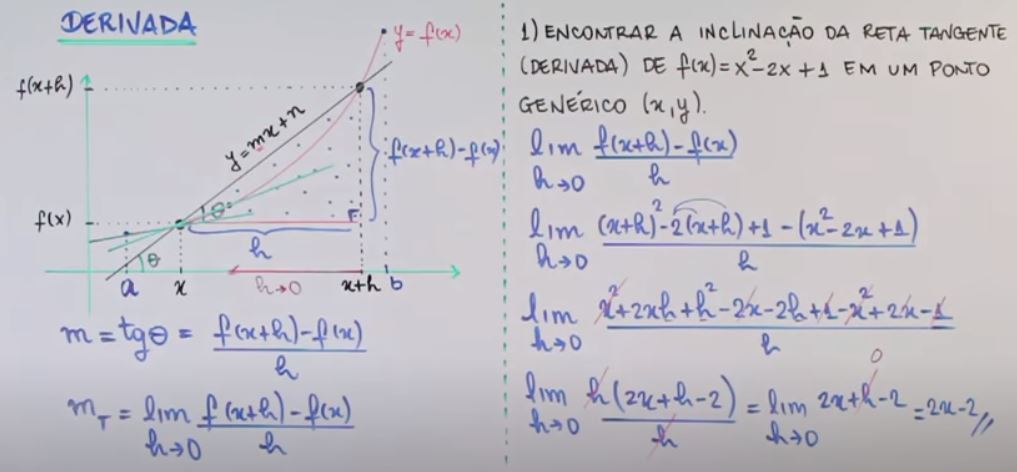 DERIVADA
y = f(x)
f(x+h)
y = mx + n
f(x+h) - f(x)
f(x)
θ
h
θ
a x h→0 x+h b
m = tgθ = f(x+h) - f(x) / h
m_T = lim h→0 f(x+h) - f(x) / h
1) ENCONTRAR A INCLINAÇÃO DA RETA TANGENTE
(DERIVADA) DE f(x) = x² - 2x + 1 EM UM PONTO
GENÉRICO (x, y).
lim h→0 f(x+h) - f(x) / h
lim h→0 (x+h)² - 2(x+h) + 1 - (x² - 2x + 1) / h
lim h→0 x² + 2xh + h² - 2x - 2h + 1 - x² + 2x - 1 / h
0
lim h→0 h(2x + h - 2) / h = lim h→0 2x + h - 2 = 2x - 2 //